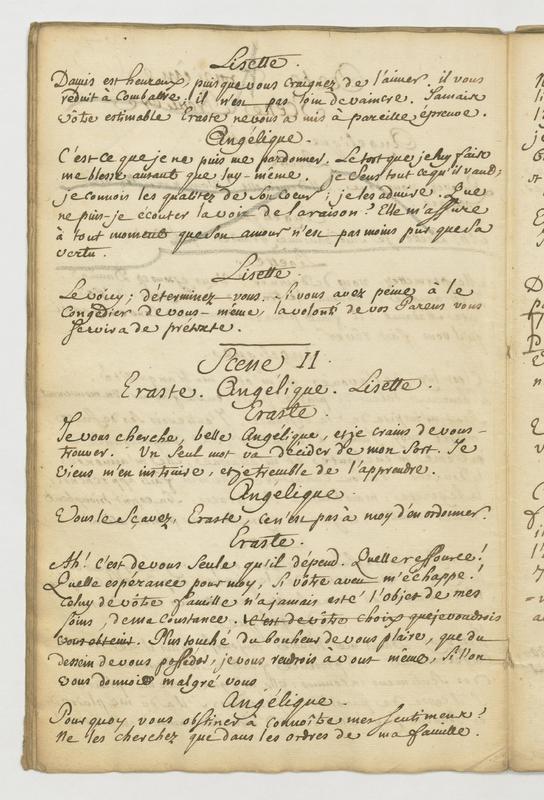 Lisette.
Damis est heureux, puisque vous craignez de l'aimer. il vous
réduit à Combatre, il n'est pas loin de vaincre. Jamais
vôtre estimable Eraste ne vous a mis à pareille épreuve.
Angélique.
C'est ce que je ne puis me pardonner. Le tort que je luy fais
me blesse autant que luy-même. je sens tout ce qu'il vaud;
je connois les qualitez de son Coeur; je les admire. Que
ne puis-je écouter la voix de la raison? Elle m'assure
à tout moment que son amour n'est pas moins pur que sa
vertu.
Lisette.
Le voicy; déterminez-vous. Si vous avez peine à le
Congédier de vous-même, la volonté de vos Parens vous
servira de prétexte.
Scene II.
Eraste. Angélique. Lisette.
Eraste.
Je vous cherche, belle Angélique, et je crains de vous-
trouver. Un seul mot va décider de mon sort. Je
viens m'en instruire, et je tremble de l'apprendre.
Angélique.
Vous le Sçavez, Eraste, ce n'est pas à moy d'en ordonner.
Eraste.
Ah! C'est de vous seule qu'il dépend. Quelle ressource!
Quelle espérance pour moy, si vôtre aveu m'échappe!
Celuy de vôtre famille n'a jamais esté l'objet de mes
soins, de ma Constance. C'est de vôtre choix que je voudrois
vous obtenir. Plus touché du bonheur de vous plaire, que du
dessein de vous posséder, je vous rendrois à vous même, si l'on
vous donnoit malgré vous
Angélique.
Pourquoy vous obstiner à connoître mes sentimens?
Ne les cherchez que dans les ordres de ma famille.